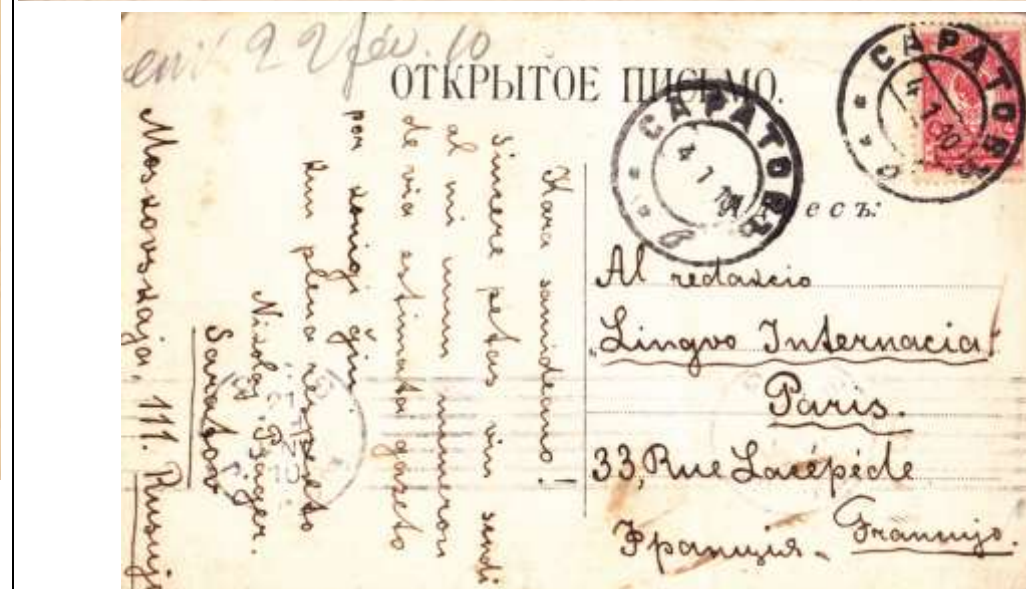 22 fév. 10
ОТКРЫТОЕ ПИСЬМО.
САРАТОВЪ
4 1 10
САРАТОВЪ
4 1
есъ:
Al redakcio
„Lingvo Internacia“
Paris.
33, Rue Lacépéde
Франція - Francujo.
Kara samideano!
Sincere petas vin sendi
al mi unun numeron
de via estimata gazeto
por konigi ĝin.
Kun plena respekto
Nikolaj
Saratov
Moskovskaja, 111. Rusujo